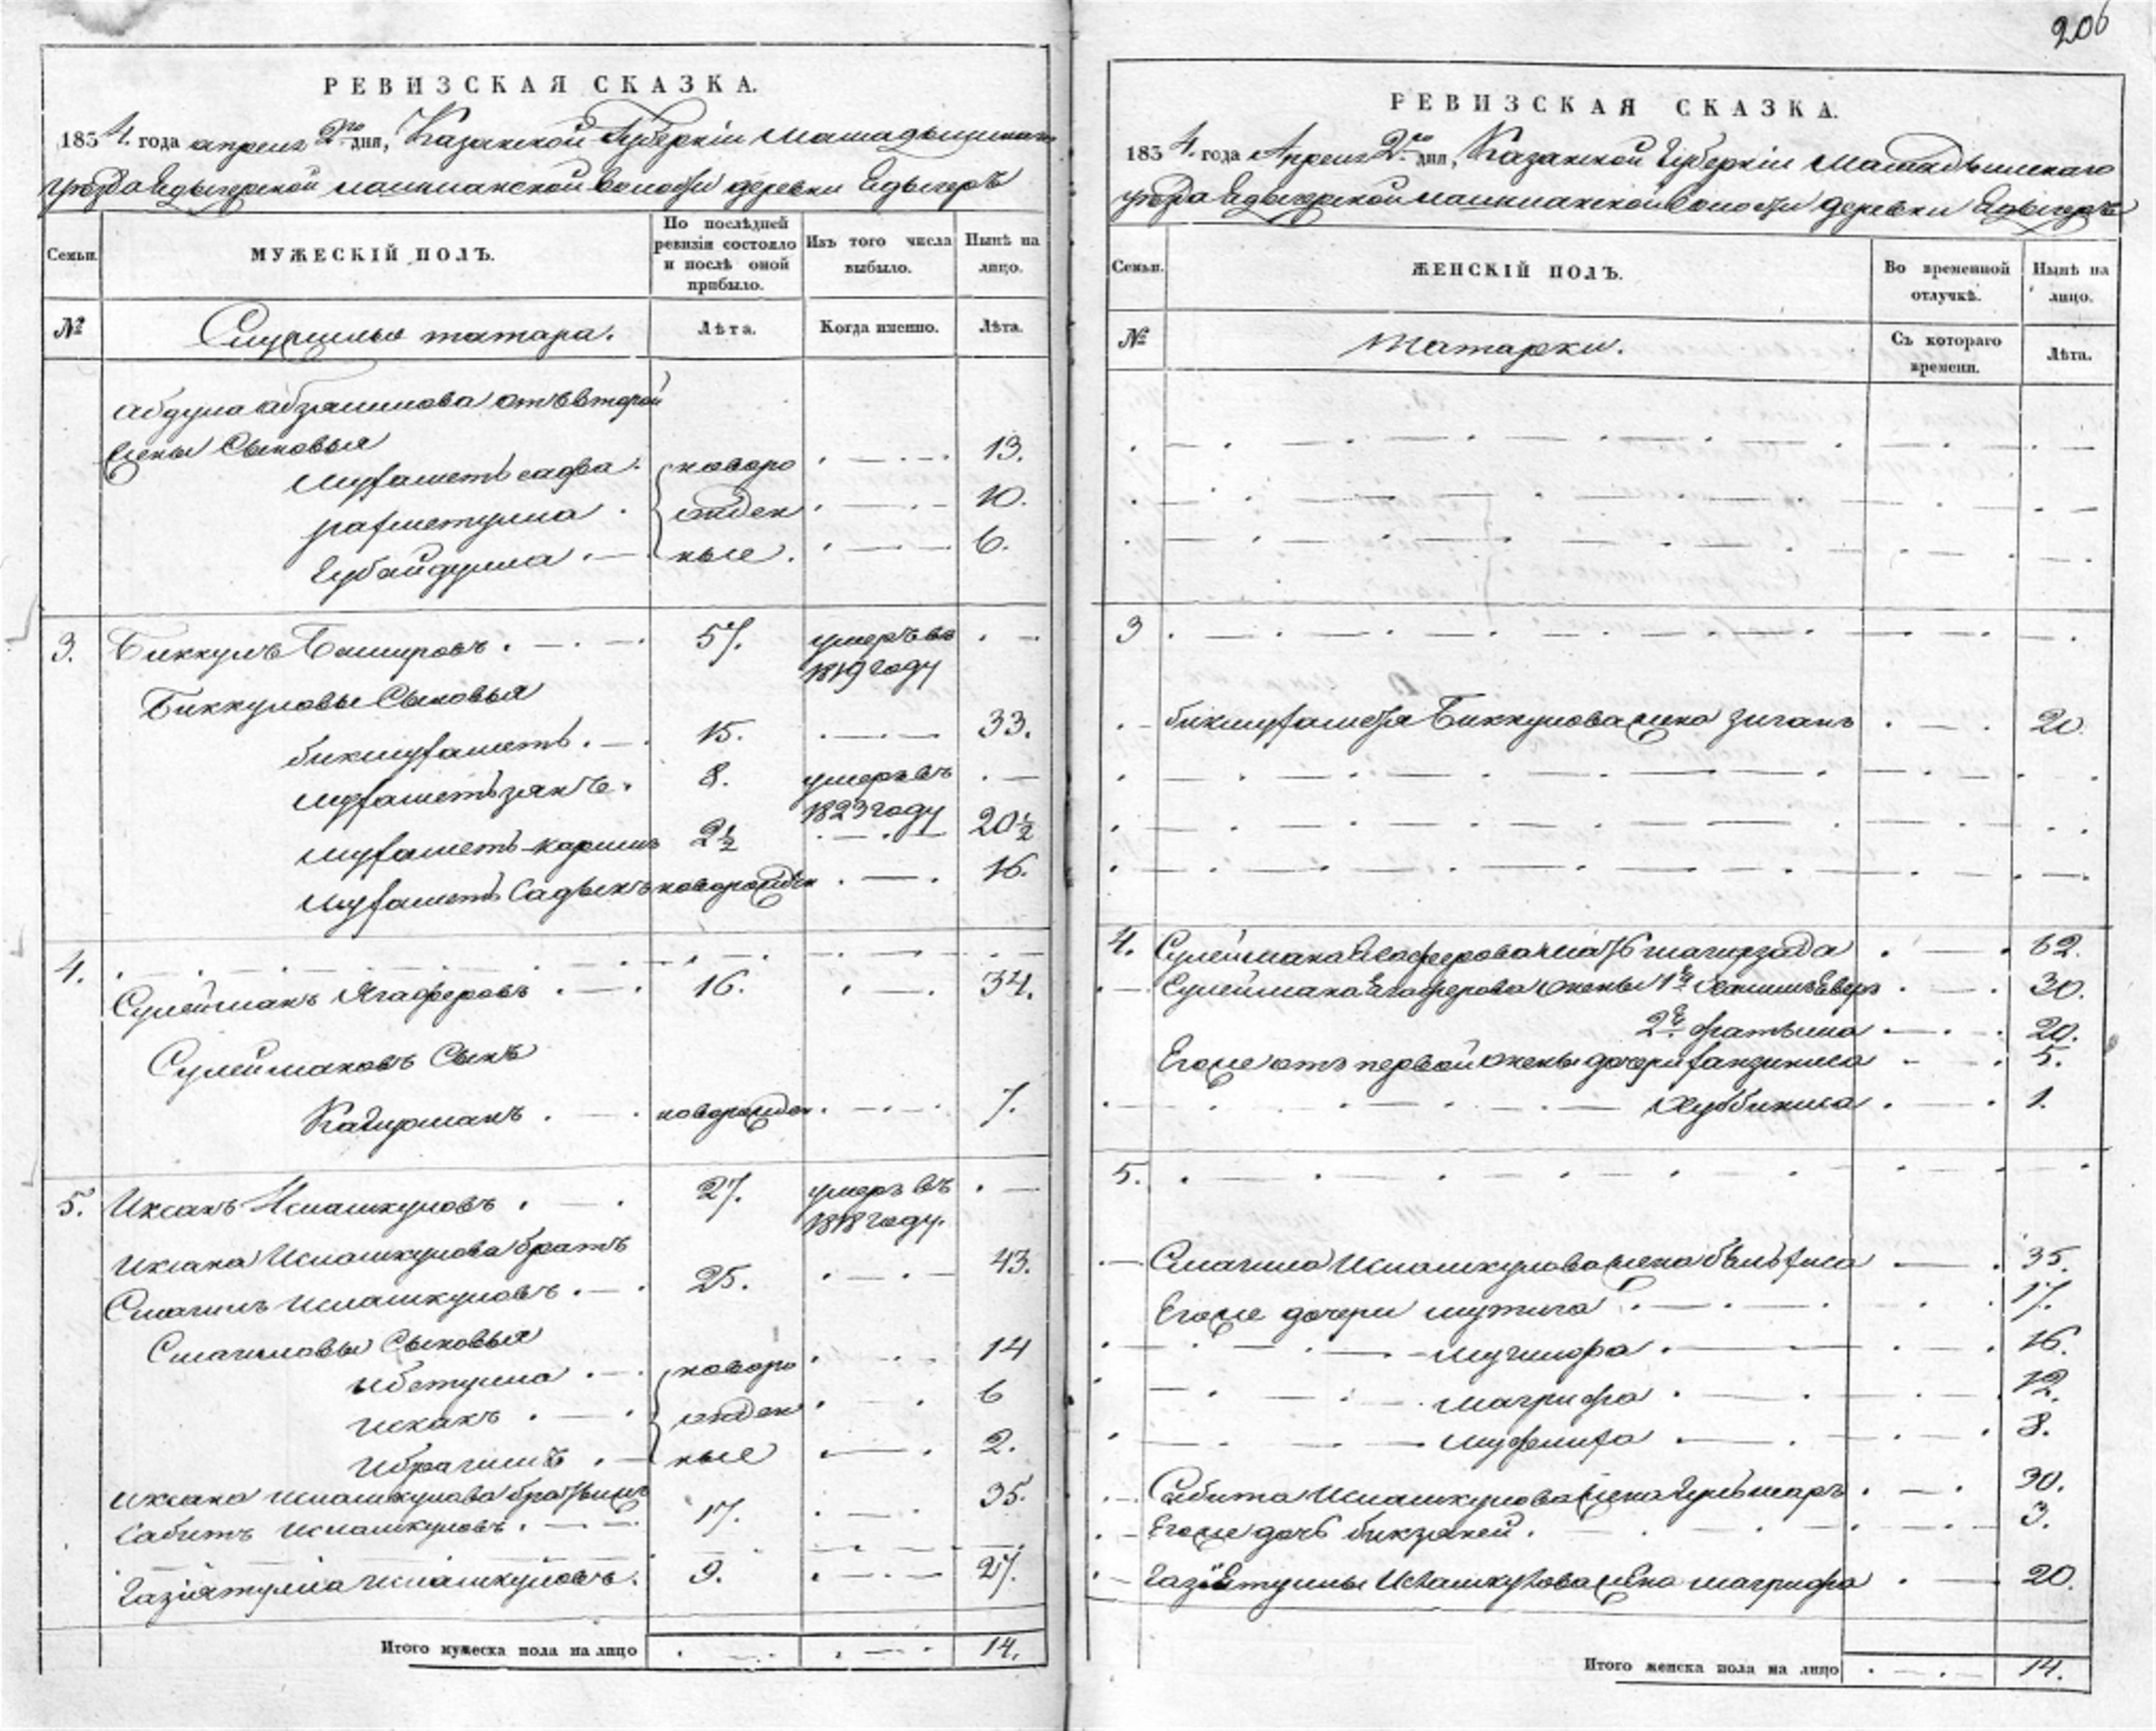 206
РЕВИЗСКАЯ СКАЗКА.
1834. года апреля 2го дня, Казанской Губерніи Мамадышскаго
уезда Едыгерской волости деревни Едыгеръ
Семьи.
МУЖЕСКІЙ ПОЛЪ.
По послѣдней ревизіи состояло и послѣ оной прибыло.
Изъ того числа выбыло.
Нынѣ на лицо.
№
Служилые татара.
Лѣта.
Когда именно.
Лѣта.
Абдула отъ второй
жены Сыновья
Мухаметь сафа новоро 13.
рахметулла жден 10.
Губайдулла ные. 6.
3. Биккулъ Башировъ. 57. умеръ въ
1819 году
Биккуловы Сыновья
бикмухаметь. 15. 33.
мухаметьзянъ. 8. умеръ въ
1823 году
мухаметь каримъ 2½ 20½
мухаметь Садыкъ новорожден 16.
4.
Сулейманъ Ягаферовъ 16. 34.
Сулеймановъ Сынъ
Кадирманъ новорожден. 7.
5. Иксанъ Исмашкуловъ 27. умеръ въ
1818 году.
Иксана Исмашкулова братъ
Смагилъ Исмашкуловъ 25. 43.
Смагиловы Сыновья
новоро 14
Исхакъ жден 6
Ибрагимъ ные 2.
Иксана Исмашкулова братья
Сабитъ Исмашкуловъ. 17. 35.
Газіятулла Исмашкуловъ. 9. 27.
Итого мужеска пола на лицо 14.
РЕВИЗСКАЯ СКАЗКА.
1834. года Апреля 2го дня, Казанской Губерніи Мамадышскаго
уезда Едыгерской волости деревни Едыгеръ
Семьи.
ЖЕНСКІЙ ПОЛЪ.
Во временной отлучкѣ.
Нынѣ на лицо.
№
Татарки.
Съ котораго времени.
Лѣта.
3
бикмухаметя Биккулова жена 20.
4. Сулеймана Ягаферова мать 62.
Сулеймана Ягаферова жены 1я 30.
2я фатьима 20.
Егоже отъ первой жены дочери 5.
Хуббиниса 1.
5.
Смагила Исмашкулова жена 35.
Егоже дочери 17.
16.
Магрифа 12.
8.
Сабита Исмашкулова жена 30.
Егоже дочь 3.
Газіятуллы Исмашкулова жена магрифа 20.
Итого женска пола на лицо 14.